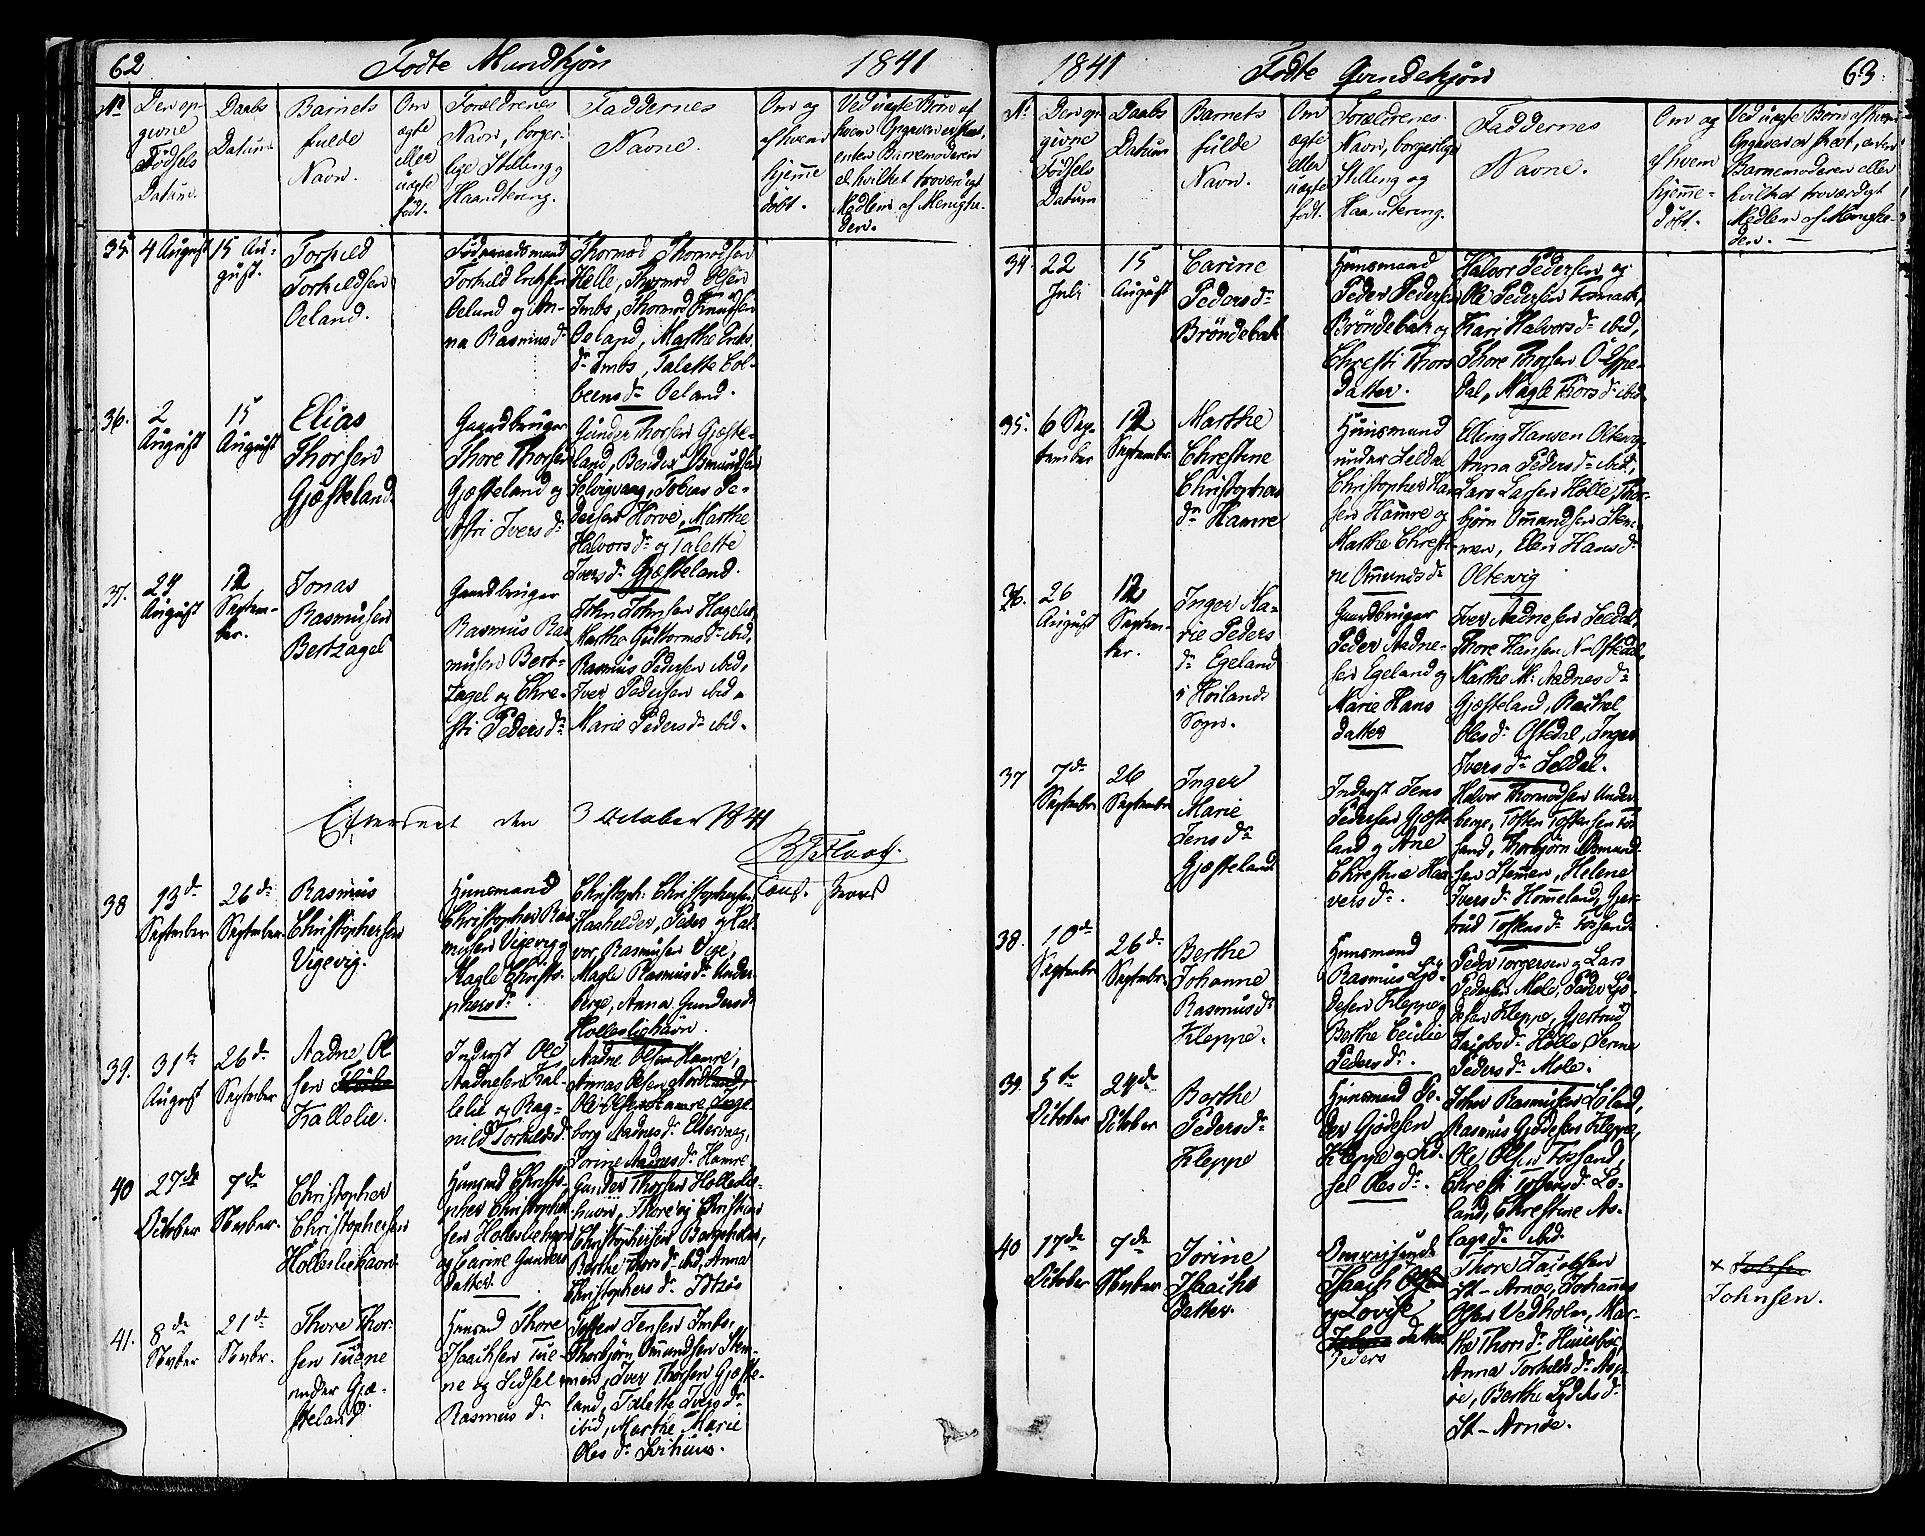 62 Fødte Mandkjøn 1841
No
Den op-
givne
Fødsels
Datum.
Daabs
Datum
Barnets
fulde
Navn.
Om
ægte
eller
uægte
født.
Forældrenes
Navn, borger-
lige Stilling og
Haandtering.
Faddernes
Navne.
Om og
af hvem
hjemme
døbt.
Ved uægte Børn af
hvem Opgaven er skeet,
enten Barnemoderen
el. hvilket troværdigt
Medlem af Menighe-
den.
35. 4 August
15 Au-
gust.
Torkild
Torkildsen
Oeland.
Torkild Ericksen
Oeland og An-
na Rasmusdr
Thormod Thormodsen
Helle, Thormod Olsen
Imbs, Thormod Knudsen
Oeland, Marthe Ericks
dr Imbs, Talette Col-
beensdr Oeland.
36. 2
August
15
August
Elias
Thorsen
Gjesteland.
Gaardbruger
Thore Thorsen
Gjesteland og
Astri Iversdr
Gunder Thorsen Gjeste-
land, Bendix Asmundsen
Selvigvaag, Tobias Pe-
dersen Horve, Marthe
Halvorsdr og Talette
Iversdr Gjesteland.
37. 24
August
12
Septem-
ber.
Jonas
Rasmusen
Bertzagel
Gaardbruger
Rasmus Ras
musen Bert-
zagel og Chre-
sti Pedersdr
John Johnsen Hageli
Martha Guttormsdr ibid,
Rasmus Pedersen ibid,
Iver Pedersen ibid,
Marie Pedersdr ibid.
Efterseet den 3 October 1841
38 13de
September
26de
September
Rasmus
Christophersen
Vigevig.
Huusmand
Christopher Ras
musen Vigevig og
Magle Christo-
phersdr
Christoph. Christophersen
Haahelder, Peder og Hal-
vor Rasmusen Vige,
Magle Rasmusdr Under-
berge, Anna Gundersdr
Holleslihavn.
39. 31te
August
26de
September
Aadne Ol
sen
Kallelie.
Inderst Ole
Aadnesen Kal-
lelie og Rag-
nild Torkildsdr
Aadne Olsen Hamre,
Ole Olsen Hamre, Inge
borg Aadnesdr Eltervaag,
Jorine Aadnesdr Hamre
40 27de
October
7de
Novber.
Christopher
Christophersen
Holleslihavn
Huusmd Christo-
pher Christopher
sen Holleslihavn
og Carine Gunders
datter.
Gunder Thorsen Holleslie-
havn, Thore og Christian
Christophersen
Berthe Thorsdr ibid, Anna
Christophersdr
41. 8de
Novber
21de
Novbr.
Thore Thor-
sen Tuene
under Gjæ-
steland
Huusmd Thore
Isachsen Tue-
ne og Sidsel
Rasmusdr
Tosten Jensen Imbs,
Thorbjørn Omundsen Stem-
men, Iver Thorsen Gjeste-
land, Talette Iversdr
ibid, Marthe Marie
Olesdr
1841 Fødte Qvindekjøn 63.
No
Den op-
givne
Fødsels
Datum
Daabs
Datum
Barnets
fulde
Navn.
Om
ægte
eller
uægte
født.
Forældrenes
Navn, borgerlige
Stilling og
Haandtering.
Faddernes
Navne.
Om og
af hvem
hjemme-
døbt.
Ved uægte Børn af hvem
Opgaven er skeet, enten
Barnemoderen eller
hvilket troværdigt
Medlem af Menighe-
den.
34. 22
Juli
15
August
Carine
Pedersdr
Brøndebak
Huusmand
Peder Pedersen
Brøndebak og
Christi Thors
datter.
Halvor Pedersen og
Ole Pedersen Fosmark,
Kari Halvorsdr ibid,
Thore Thorsen O-Espe-
dal, Magle Thorsdr ibid.
35. 6 Sep-
tember
12
Septembr.
Marthe
Christine
Christophers
dr Hamre
Huusmand
under Seldal
Christopher Han
sen Hamre og
Marthe Christi-
ne Omundsdr
Elling Hansen Oltervig
Anna Pedersdr ibid,
Lars Larsen Holle, Thor-
bjørn Omundsen Stem-
men, Elen Hansdr
Oltervig
36. 26
August
12
Septem-
ber.
Inger Ma-
rie Peders
dr Egeland
i Høilands
Sogn.
Gaardbruger
Peder Aadne-
sen Egeland og
Marie Hans
datter
Iver Aadnesen Seldal,
Thore Hansen N-Oftedal,
Marthe M. Aadnesdr
Gjesteland, Rachel
Olesdr Oftedal, Inger
Iversdr Seldal.
37 7de
Septembr.
26
Septembr.
Inger
Marie
Jensdr
Gjesteland
Inderst Jens
Pedersen Gjeste-
land og Ane
Christine Haa
versdr.
Halvor Thormodsen Under
berge, Tosten Tostensen Fos-
sand, Thorbjørn Omund-
sen Stemen, Helene
Iversdr Hommeland, Gjer-
trud Tostensdr Fossand.
38. 10de
Septembr.
26de
Septembr.
Berthe
Johanne
Rasmusdr
Kleppe.
Huusmand
Rasmus Gjø-
desen Kleppe og
Berthe Cecilie
Pedersdr.
Peder Torgersen og Lars
Pedersen Mele, Peder Gjø-
desen Kleppe, Gjertrud
Jacobsdr Holle, Serine
Pedersdr Mele.
39. 5te
October
24de
October
Berthe
Pedersdr
Kleppe
Huusmand Pe-
der Gjødesen
Kleppe og Sid-
sel Olesdr.
John Rasmusen Løland,
Rasmus Gjødesen Kleppe,
Ole Olsen Fossand,
Christi Tostensdr Lø-
land, Christine As-
lagsdr ibid.
40 17de
October
7de
Novber.
Jorine
Isachs
datter.
Isach Olsen
og Lovise
Peders datter
Thore Jacobsen
St-Arnøe, Johannes
Olsen Vedholm, Mar-
the Thorsdr
Anna Torkildsdr
Berthe
St-Arnøe.
× Johnsen
Johnsen.